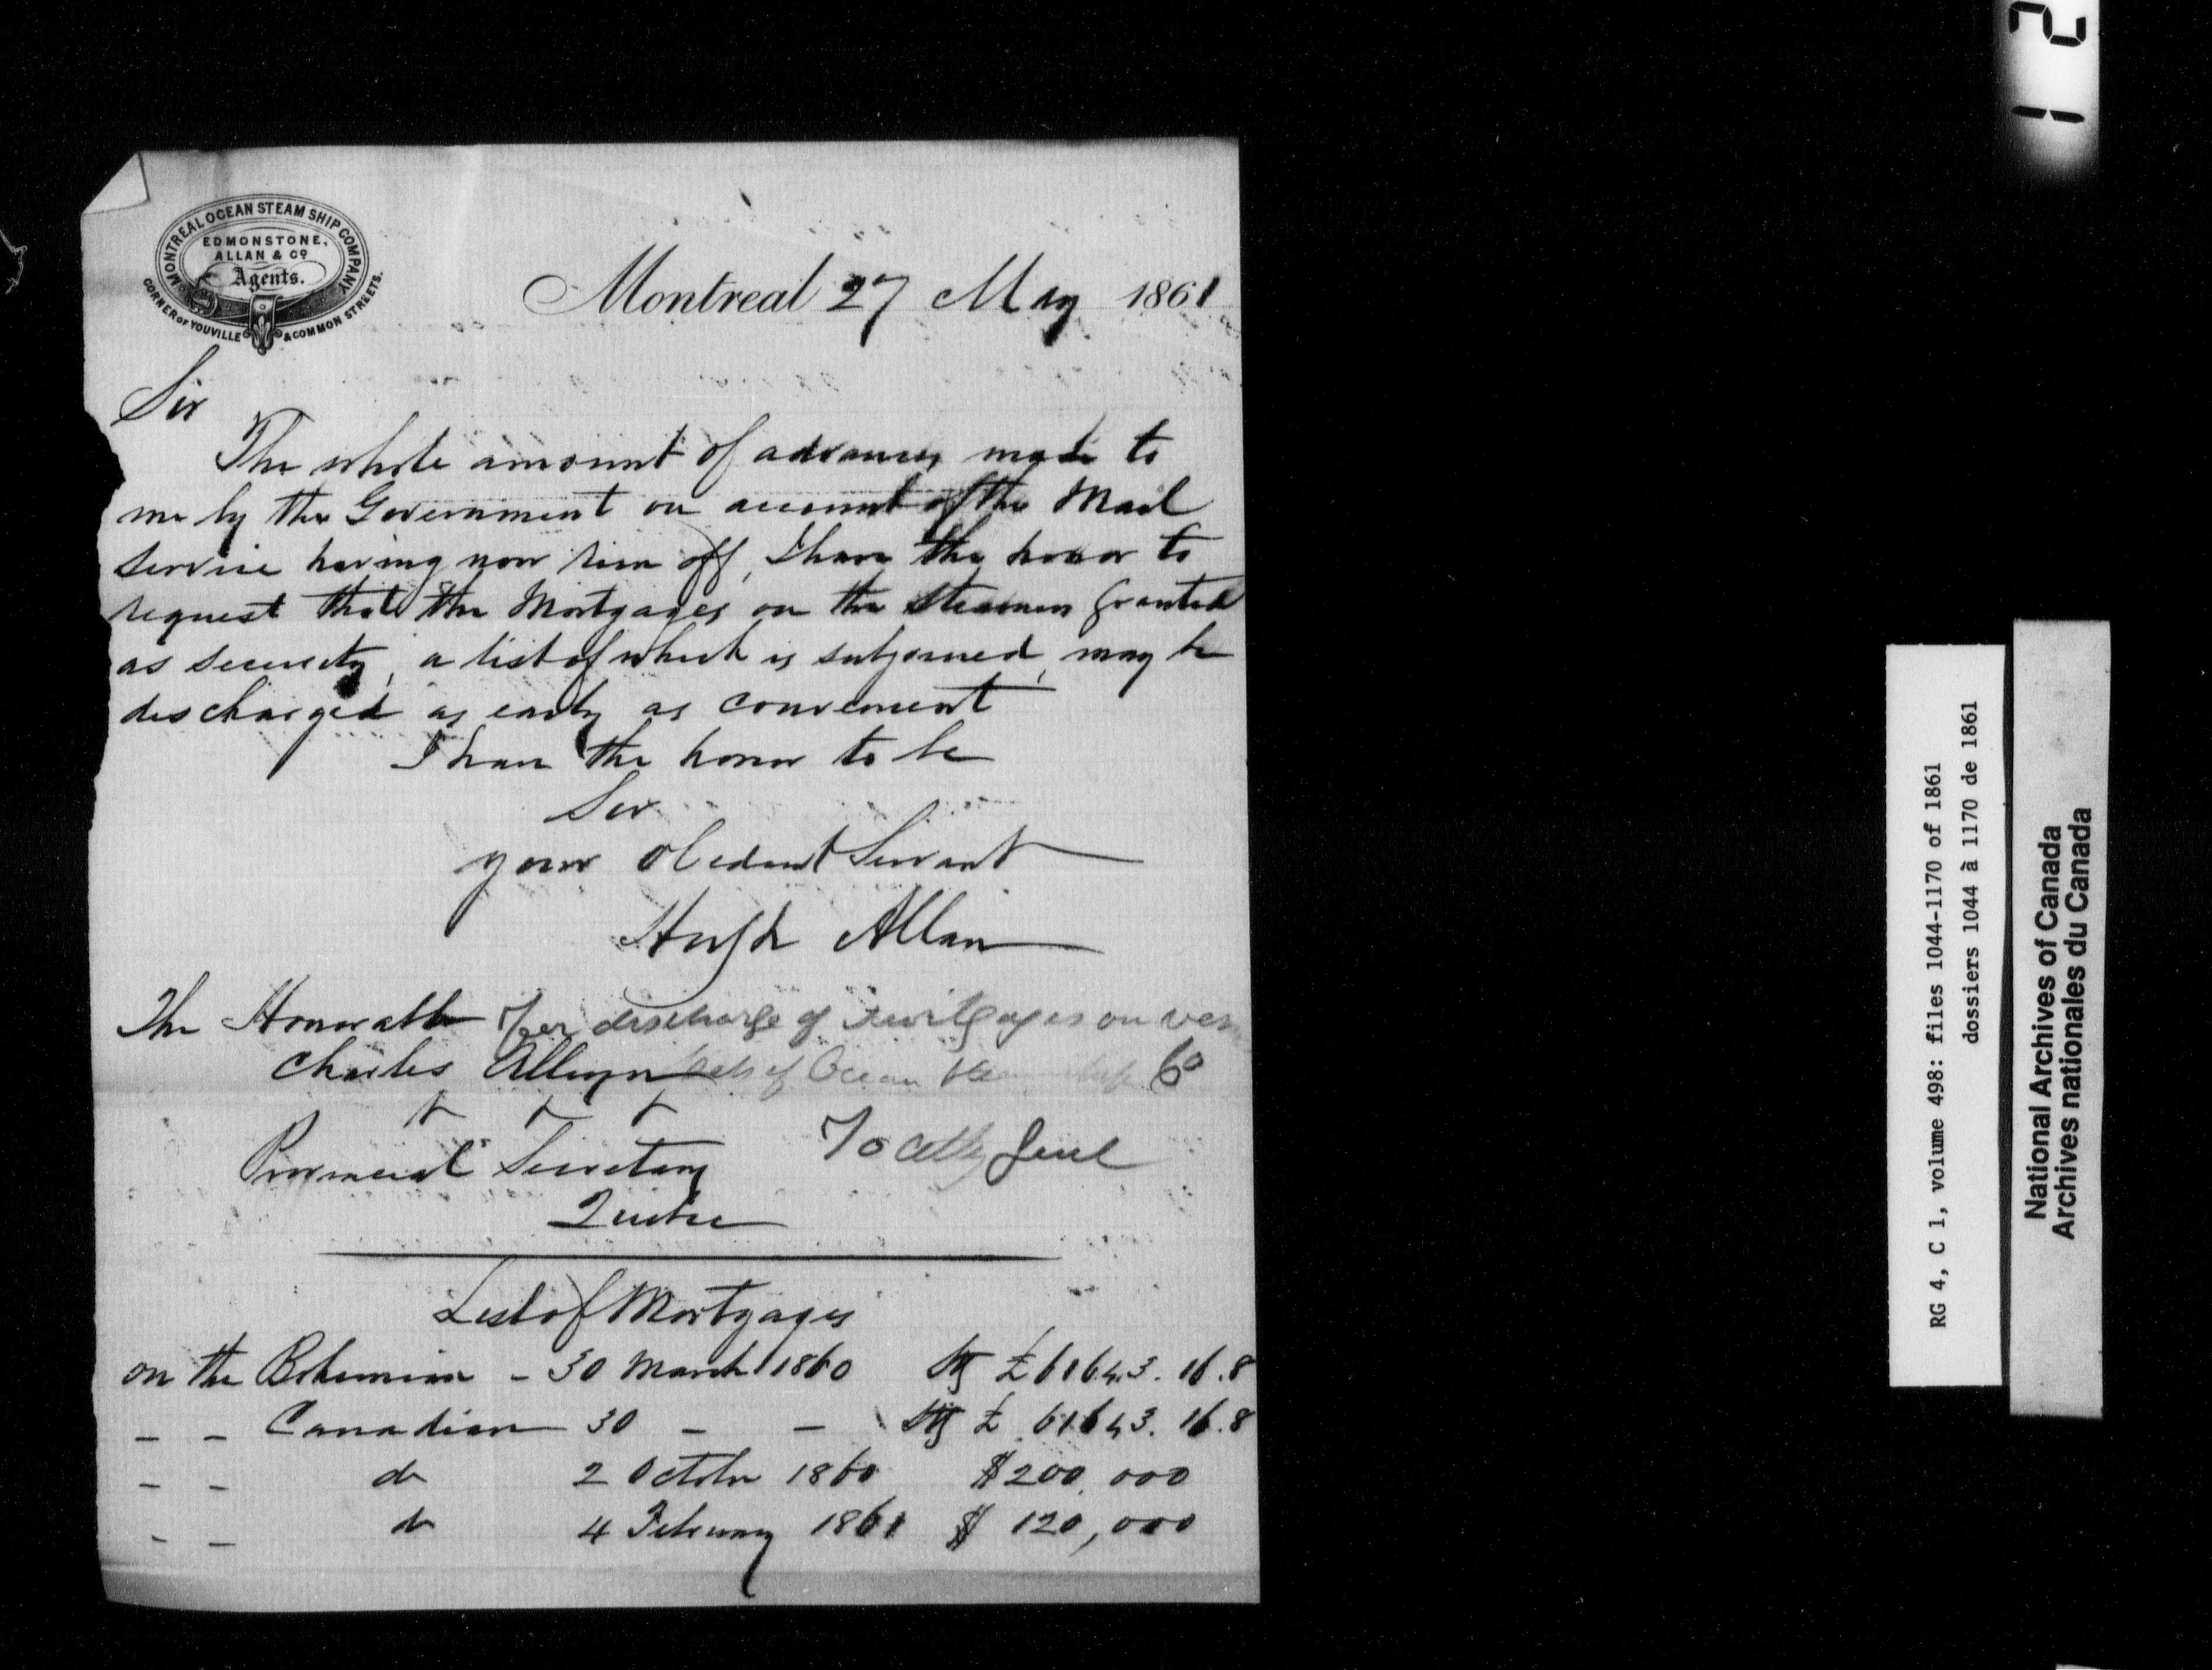 MONTREAL OCEAN STEAM SHIP COMPANY
EDMONSTONE,
ALLAN & Co
Agents.
CORNER OF YOUVILLE & COMMON STREETS.
Montreal 27 May 1861
Sir
The whole amount of advances made to
me by the Government on account of the Mail
Service having now run off, I have the honor to
request that the Mortgages on the Steamers granted
as security, a list of which is subjoined, may be
discharged as early as convenient
I have the honor to be
Sir
your obedient Servant
Hugh Allan
The Honorable
Charles Alleyn
Provincial Secretary
Quebec
For discharge of Mortgages on ves
sels of Ocean Steam ship Co
To Atty Genl
List of Mortgages
on the Bohemian - 30 March 1860 Stg £61643. 16. 8
- - Canadian 30 - - Stg £ 61643. 16. 8
- - do 2 October 1860 $200,000
- - do 4 February 1861 $ 120,000
12
RG 4, C 1, volume 498: files 1044-1170 of 1861
dossiers 1044 à 1170 de 1861
National Archives of Canada
Archives nationales du Canada